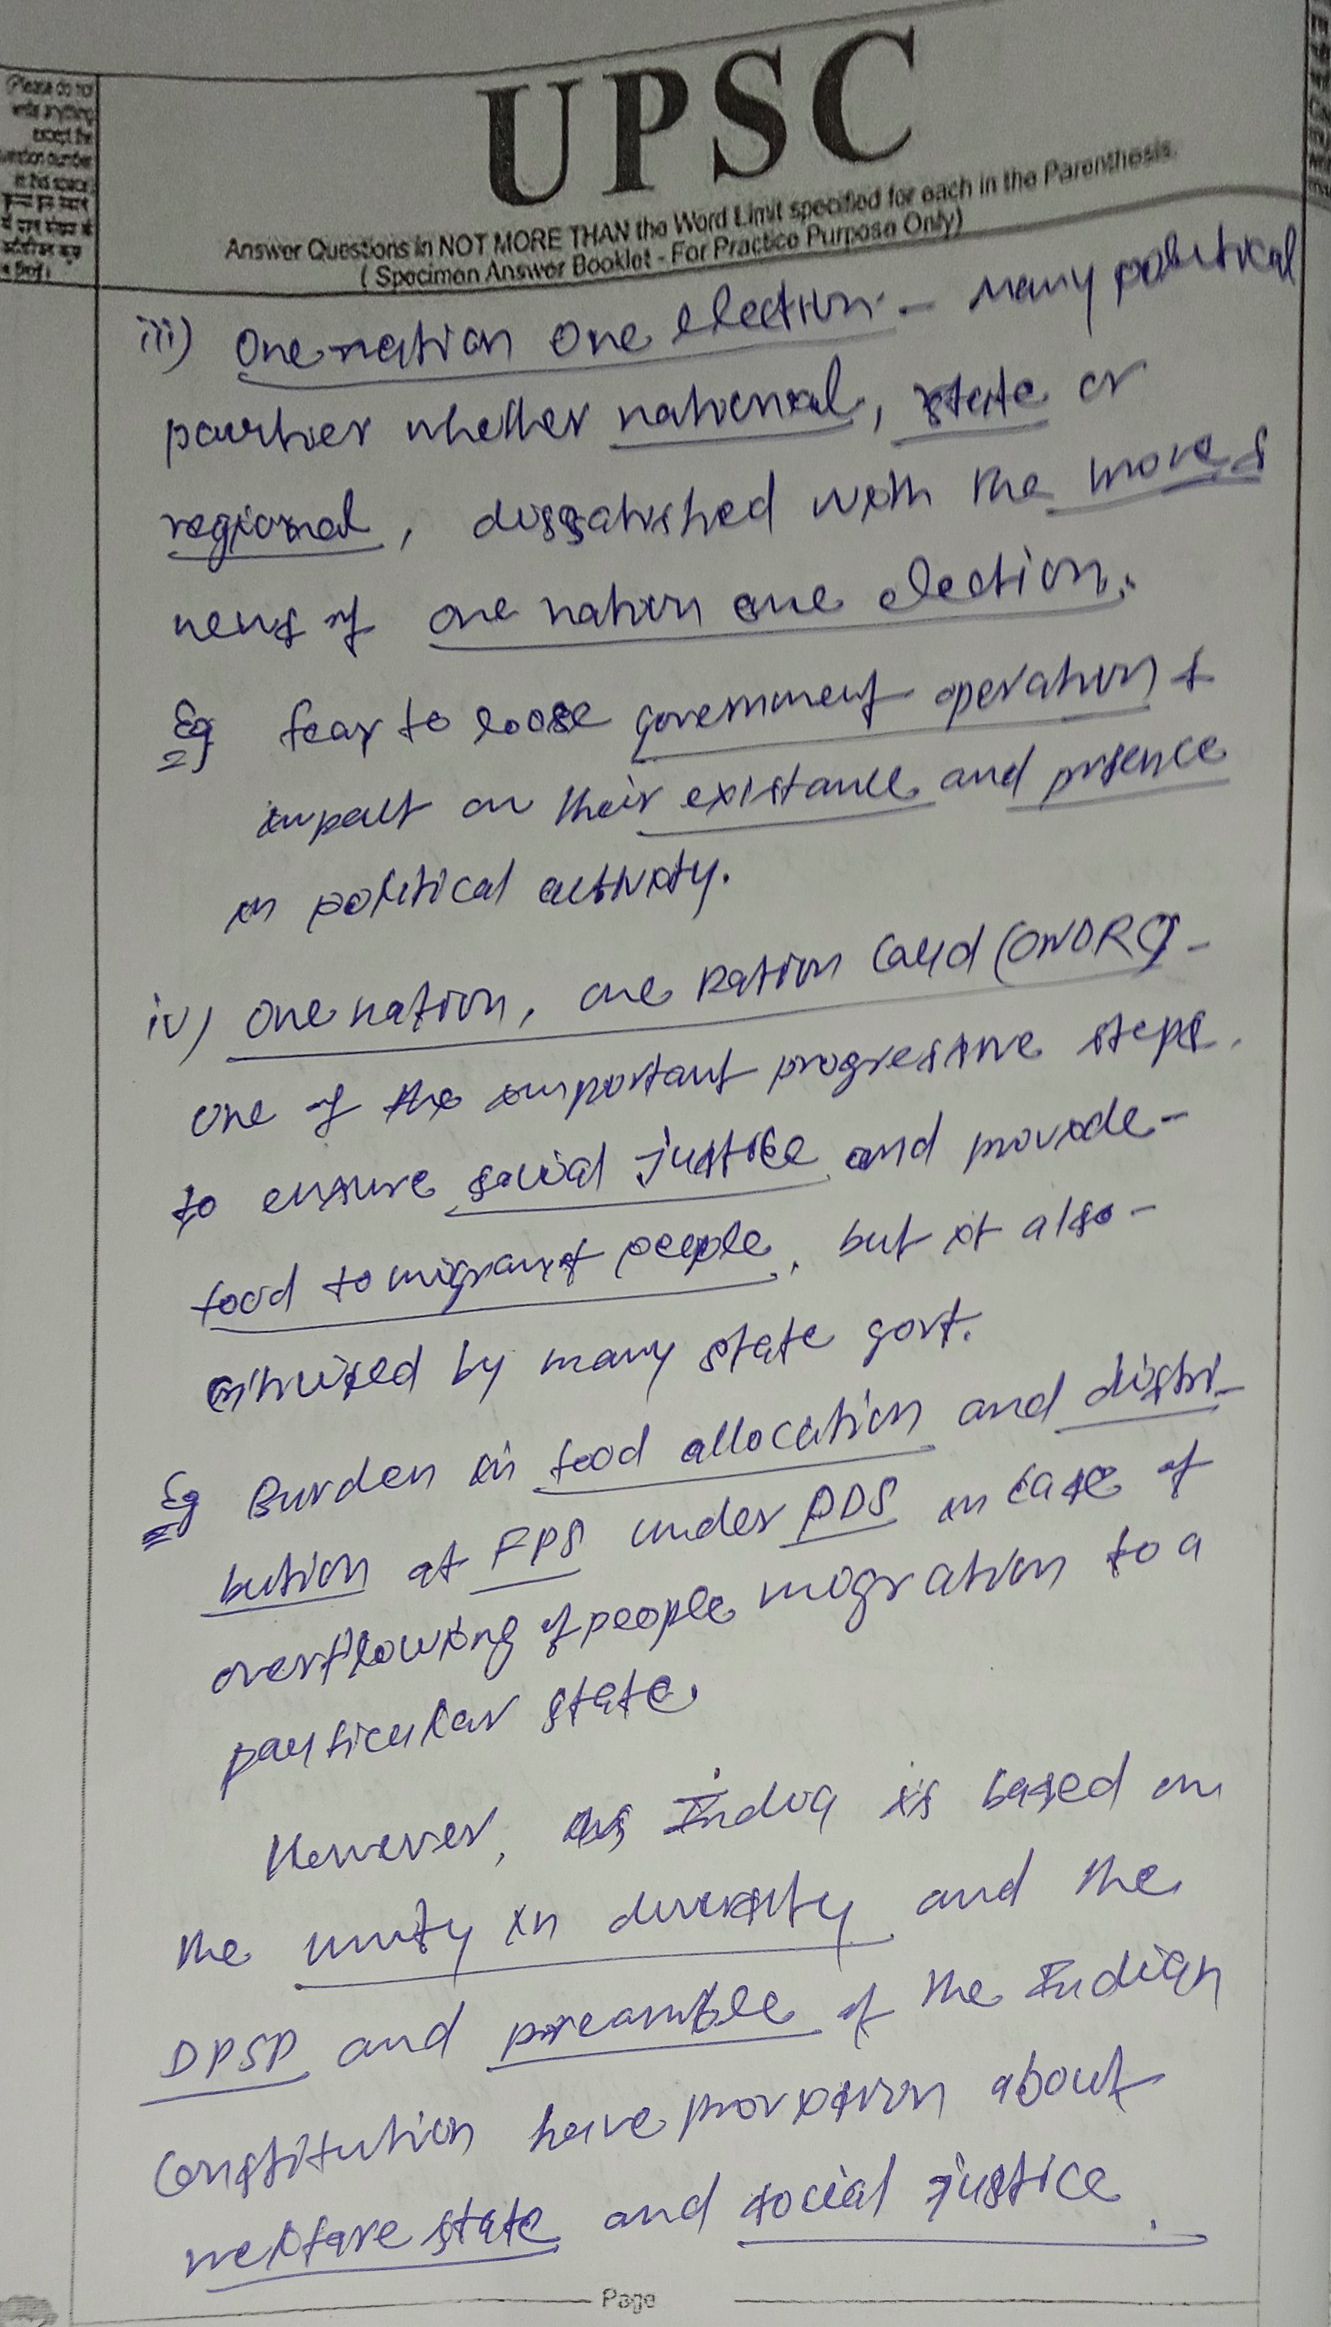 (Please do not
write anything
except the
question number
in this space
UPSC
Answer Questions in NOT MORE THAN the Word Limit specified for each in the Parenthesis.
( Specimen Answer Booklet - For Practice Purpose Only)
iii) One nation One election - Many political
parties whether national, state or
regional, dissatisfied with the move
news of one nation one election.
Eg fear to loose government operation &
impact on their existance and prsence
in political activity.
iv) One nation, one Ration Card (ONORC) -
one of the important progressive steps
to ensure social justice and provide -
food to migrant people, but it also -
by many state govt.
Eg Burden in food allocation and distri-
bution at FPS under PDS in case of
overflowing of people migration to a
particular state.
However, as India is based on
the unity in diversity and the
DPSP and preamble of the Indian
Constitution have provision about
welfare state and social justice.
Page